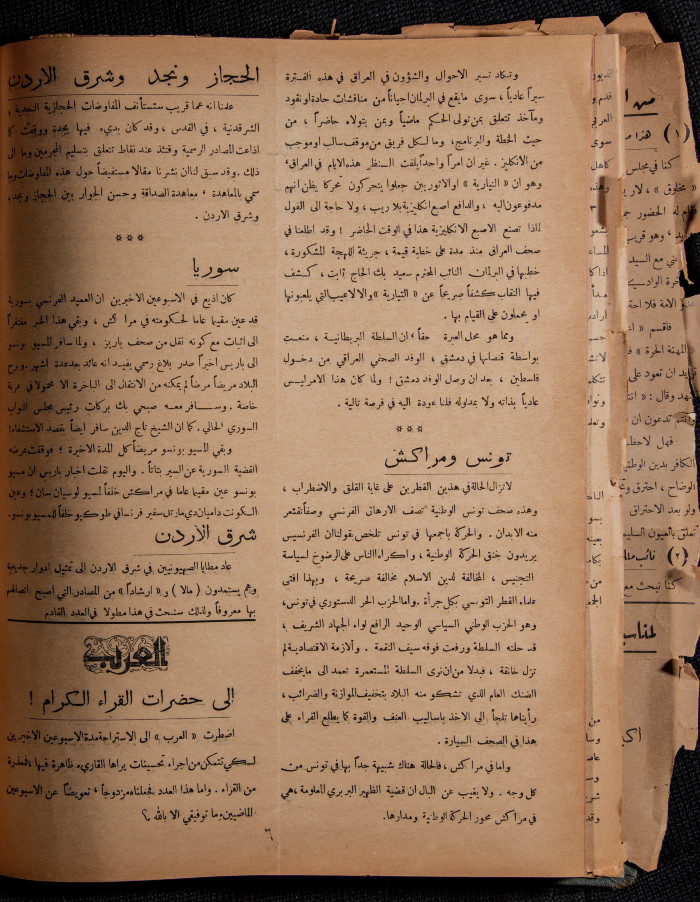 وتكاد تسير الاحوال والشؤون في العراق في هذه الفترة
سيراً عادياً، سوى مايقع في البرلمان احياناً من مناقشات حادة ونقود
ومآخذ تتعلق بمن تولى الحكم ماضياً وبمن يتولاه حاضراً، من
حيث الخطة والبرنامج، وما لكل فريق من موقف سالب او موجب
من الانكليز. غير ان امراً واحداً يلفت النظر هذه الايام في العراق،
وهو ان « التيارية » او الاثوريين جعلوا يتحركون تحركا يظن انهم
مدفوعون اليه، والدافع اصبع انكليزية بلا ريب، ولا حاجة الى القول
لماذا تصنع الاصبع الانكليزية هذا في الوقت الحاضر! وقد اطلعنا في
صحف العراق منذ مدة على خطبة قيمة، جريئة اللهجة المشكورة،
خطبها في البرلمان النائب المحترم سعيد بك الحاج ثابت، كشف
فيها النقاب كشفاً صريحاً عن « التيارية » والالاعيب التي يلعبونها
او يحملون على القيام بها.
ومما هو محل العبرة حقاً ان السلطة البريطانية، منعت
بواسطة قنصلها في دمشق، الوفد الصحفي العراقي من دخول
فلسطين، بعد ان وصل الوفد دمشق! ولما كان هذا الامر ليس
عادياً بذاته ولا بمدلوله فلنا عودة اليه في فرصة تالية.
***
تونس ومراكش
لاتزال الحالة في هذين القطرين على غاية القلق والاضطراب،
وهذه صحف تونس الوطنية تصف الارهاق الفرنسي وصفاً تقشعر
منه الابدان. والحركة باجمعها في تونس تلخص بقولنا ان الفرنسيس
يريدون خنق الحركة الوطنية، واكراه الناس على الرضوخ لسياسة
التجنيس، المخالفة لدين الاسلام مخالفة صريحة، وبهذا افتى
علماء القطر التونسي بكل جرأة. واما الحزب الحر الدستوري في تونس،
وهو الحزب الوطني السياسي الوحيد الرافع لواء الجهاد الشريف،
قد حلته السلطة ورفعت فوقه سيف النقمة. والازمة الاقتصادية لم
تزل خانقة، فبدلا من ان نرى السلطة المستعمرة تعمد الى مايخفف
الضنك العام الذي تشكو منه البلاد بتخفيف الموازنة والضرائب،
رأيناها تلجأ الى الاخذ باساليب العنف والقوة كما يطلع القراء على
هذا في الصحف السيارة.
واما في مراكش، فالحالة هناك شبيهة جداً بها في تونس من
كل وجه. ولا يغيب عن البال ان قضية الظهير البربري المعلومة، هي
في مراكش محور الحركة الوطنية ومدارها.
الحجاز ونجد وشرق الاردن
علمنا انه عما قريب ستستأنف المفاوضات الحجازية النجدية،
الشرقدنية، في القدس، وقد كان بديء فيها بجدة ووقفت كما
اذاعت المصادر الرسمية وقتئذ عند نقاط تتعلق بتسليم المجرمين وما الى
ذلك. وقد سبق لنا ان نشرنا مقالا مستفيضاً حول هذه المفاوضات وما
سمي بالمعاهدة، معاهدة الصداقة وحسن الجوار بين الحجاز ونجد،
وشرق الاردن.
***
سوريا
كان اذيع في الاسبوعين الاخيرين ان العميد الفرنسي بسورية
قد عين مقيما عاما لحكومته في مراكش، وبقي هذا الخبر مفتقراً
الى اثبات مع كونه نقل من صحف باريز، ولما سافر المسيو بونسو
الى باريس اخيراً صدر بلاغ رسمي يفيد انه عائد بعد عدة اشهر، وبرح
البلاد مريضاً مرضاً لم يمكنه من الانتقال الى الباخرة الا محمولا في عربة
خاصة. وسافر معه صبحي بك بركات رئيس مجلس النواب
السوري الحالي. كما ان الشيخ تاج الدين سافر ايضاً بقصد الاستشفاء!
وبقي المسيو بونسو مريضاً كل المدة الاخيرة؛ فوقفت بمرضه
القضية السورية عن السير بتاتاً. واليوم نقلت اخبار باريس ان مسيو
بونسو عين مقيما عاما في مراكش خلفاً لمسيو لوسيان سان؛ وعين
الكونت داميان دي مارتل سفير فرنسا في طوكيو خلفاً للمسيو بونسو.
شرق الاردن
عاد مطايا الصهيونيين في شرق الاردن الى تمثيل ادوار جديدة
وهم يستمدون ( مالا ) و« ارشاداً » من المصادر التي اصبح اتصالهم
بها معروفاً ولذلك سنبحث في هذا مطولا في العدد القادم
العرب
الى حضرات القراء الكرام!
اضطرت « العرب » الى الاستراحة مدة الاسبوعين الاخيرين
لكي تتمكن من اجراء تحسينات يراها القاريء ظاهرة فيها فالمعذرة
من القراء. واما هذا العدد فجعلناه مزدوجاً، تعويضاً عن الاسبوعين
الماضيين، وما توفيقي الا بالله
٦